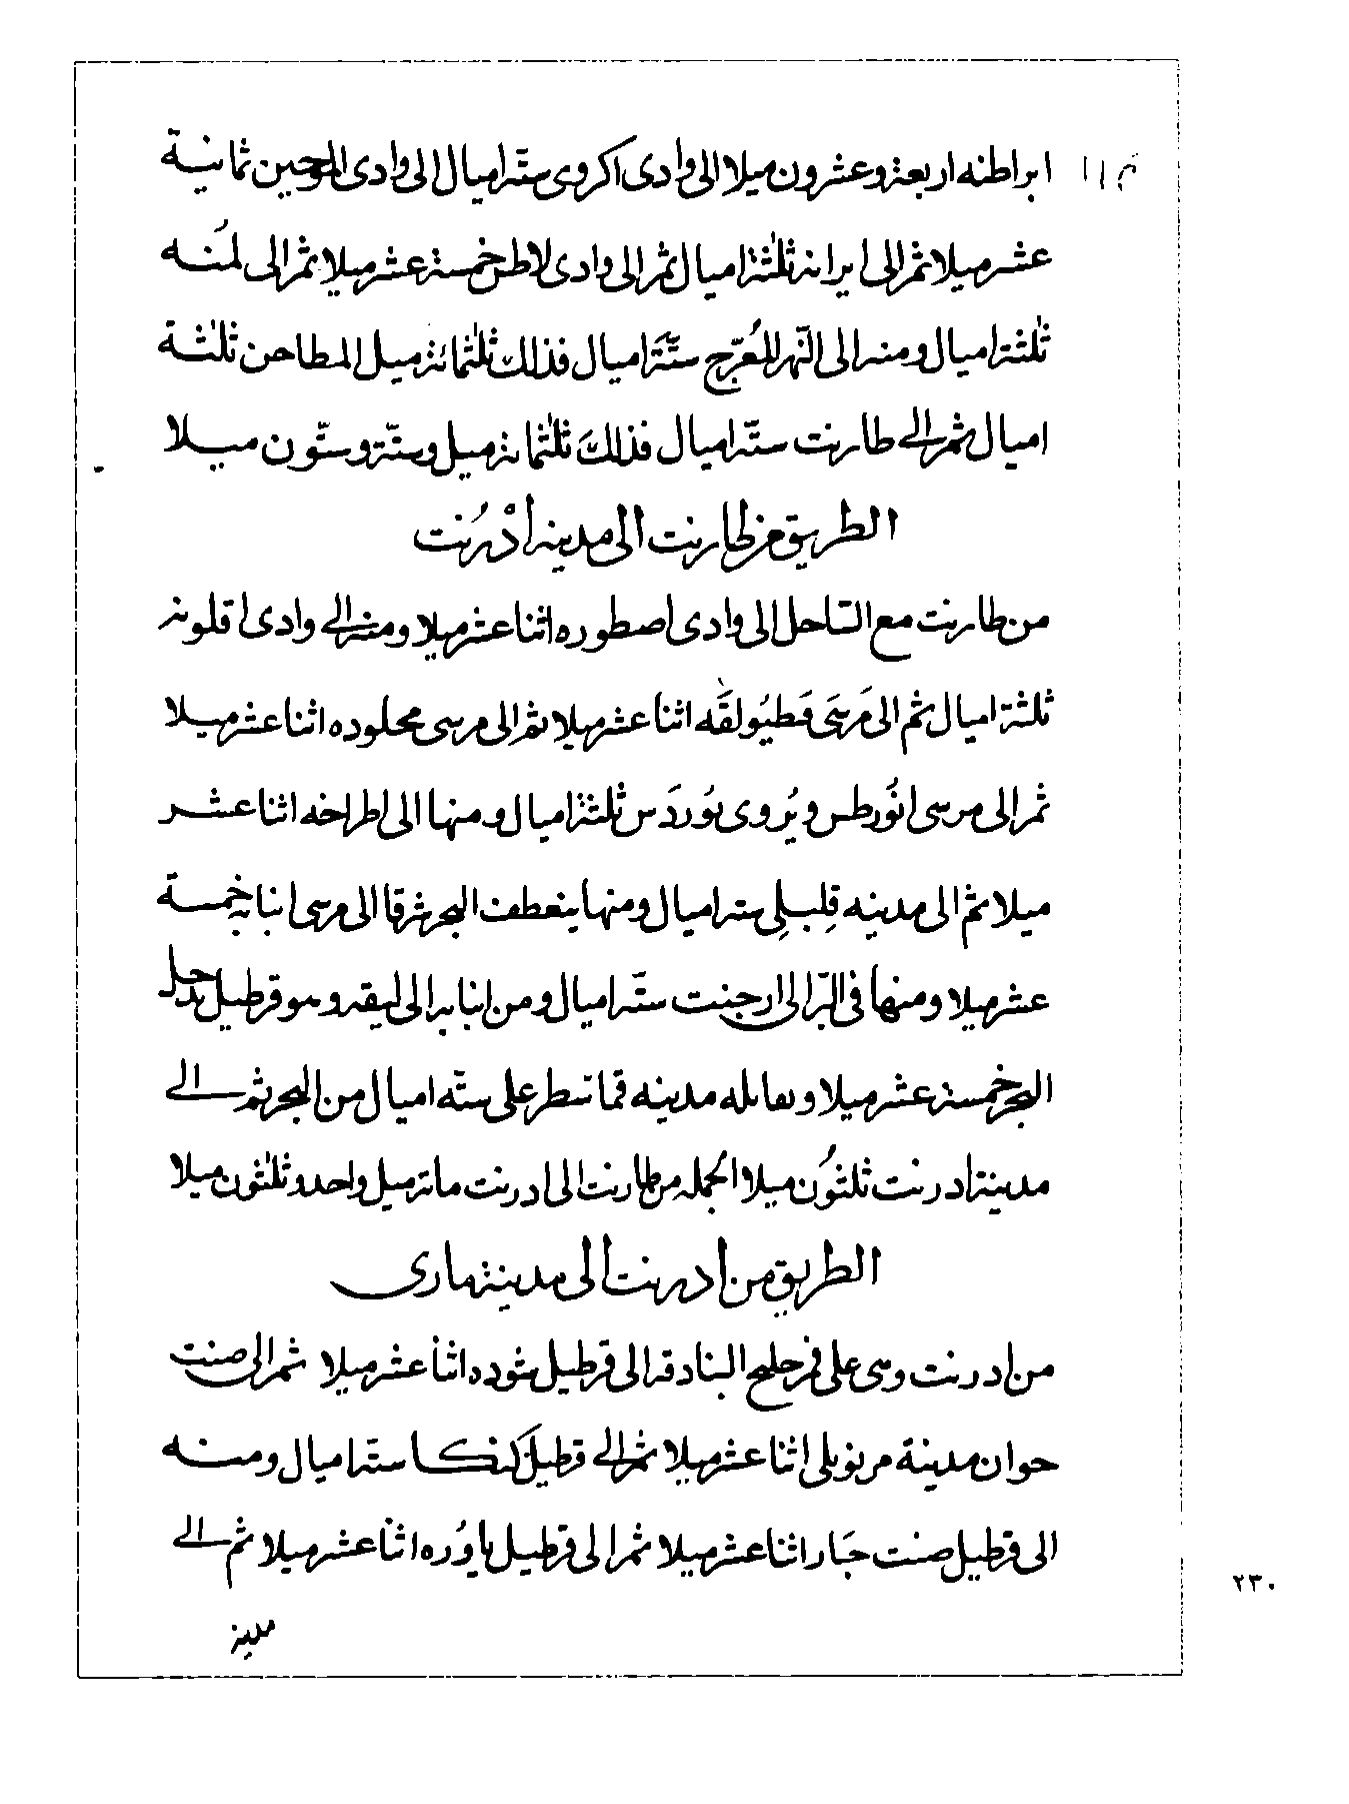 ثم الى ابراطنه اربعة وعشرون ميلا الى وادى اكروى ستة اميال الى وادى الموجين ثمانية
عشر ميلا ثم الى ايرانه ثلثة اميال ثم الى وادى لاطس خمسة عشر ميلا ثم الى لمُنه
ثلثة اميال ومنه الى النّهر المُعَرّج ستّة اميال فذلك ثلثمائة ميل المطاحن ثلثة
اميال ثم الى طارنت ستّة اميال فذلك ثلثمائة ميل وستّة وستّون ميلا
الطريق من طارنت الى مدينة اُدْرُنت
من طارنت مع السّاحل الى وادى اصطوره اثنا عشر ميلا ومنه الى وادى اقلونه
ثلثة اميال ثم الى مَرسَى قَطيُولقَه اثنا عشر ميلا ثم الى مرسى محلوده اثنا عشر ميلا
ثم الى مرسى انوُرطس ويُروى بوُردَس ثلثة اميال ومنها الى اطراخه اثنا عشر
ميلا ثم الى مدينه قِلبلِى ستة اميال ومنها ينعطف البحر شرقا الى مرسى ابنابه خمسة
عشر ميلا ومنها فى البّر الى ارجنت ستّة اميال ومن ابنابه الى ليقه وهو قرطيل يدخل
البحر خمسة عشر ميلا ويقابله مدينه قماسطر على ستّه اميال من البحر ثم الى
مدينة ادرنت ثلثوُن ميلا الجُمله من طارنت الى ادرنت مائة ميل واحد وثلثون ميلا
الطريق من ادرنت الى مدينة مارى
من ادرنت وهى على فم خليج البنادقه الى قرطيل شوده اثنا عشر ميلا ثم الى صنت
جوان مدينة مرنوبلى اثنا عشر ميلا ثم الى قرطيل كنكا ستّة اميال ومنه
الى قرطيل صنت جَبار اثنا عشر ميلا ثم الى قرطيل باوُره اثنا عشر ميلا ثم الى
مدينة
٢٣٠